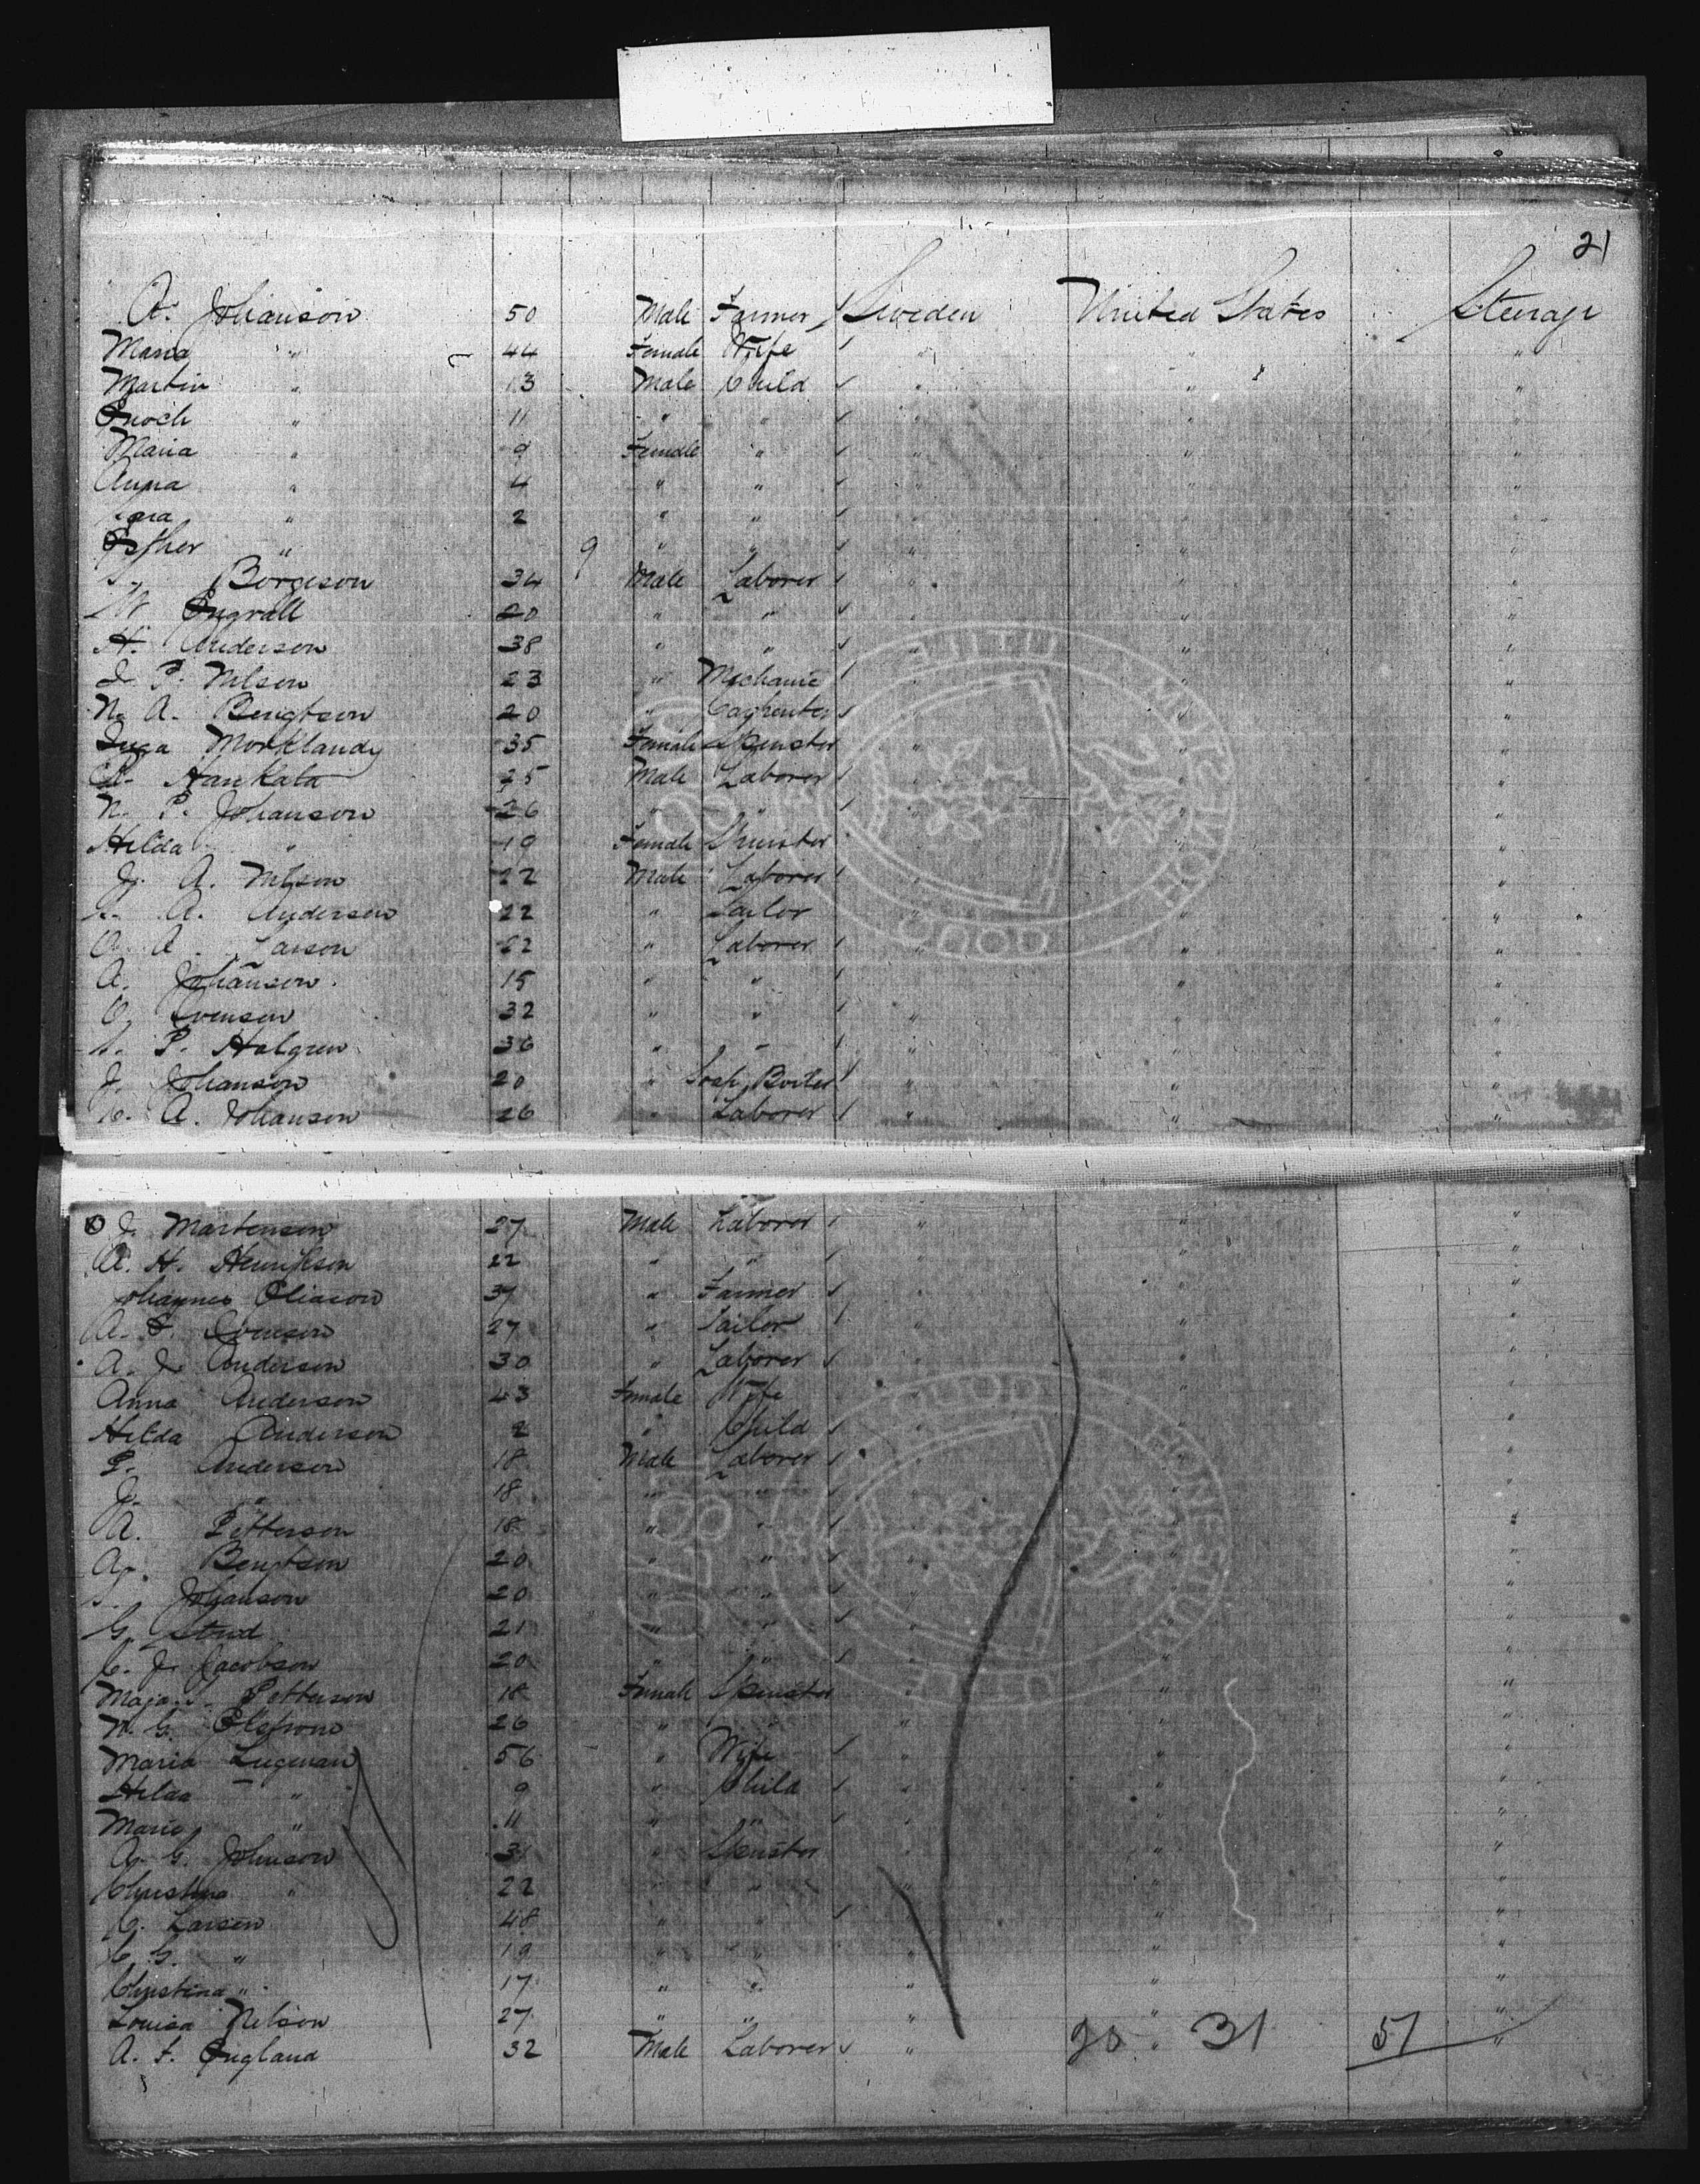 21
A. Johanson 50 Male Farmer Sweden United States Steerage
Maria " 44 Female Wife " " "
Martin " 13 Male Child " " "
Enoch " 11 " " " " "
Maria " 9 Female " " " "
Anna " 4 " " " " "
" 2 " " " " "
Esther " 9 " " " " "
Borgeson 34 Male Laborer " " "
W. Engrall 20 " " " " "
H. Anderson 38 " " " " "
P. Nilson 23 " Mechanic " " "
N. A. Bengtson 20 " Carpenter " " "
Inga Morklandy 35 Female Spinster " " "
Hankala 25 Male Laborer " " "
N. P. Johanson 26 " " " " "
Hilda " 19 Female Spinster " " "
J. A. Nilson 22 Male Laborer " " "
A. Anderson 22 " Tailor " " "
A. Larson 22 " Laborer " " "
A. Johanson 15 " " " " "
O. Svenson 32 " " " " "
P. Halgren 36 " " " " "
J. Johanson 20 " Soap Boiler " " "
C. A. Johanson 26 " Laborer " " "
J. Martenson 27 Male Laborer " " "
A. H. Henrikson 22 " " " " "
Johannes Eliason 37 " Farmer " " "
A. Svenson 27 " Tailor " " "
A. J. Anderson 30 " Laborer " " "
Anna Anderson 43 Female Wife " " "
Hilda Anderson 2 " Child " " "
P. Anderson 18 Male Laborer " " "
J. " 18 " " " " "
A. Petterson 18 " " " " "
A. Bengtson 20 " " " " "
Johanson 20 " " " " "
G. Strid 21 " " " " "
C. J. Jacobson 20 " " " " "
Maja Petterson 18 Female Spinster " " "
N. G. Elstrom 26 " " " " "
Maria Lugeman 56 " Wife " " "
Hilda " 9 " Child " " "
Maria " 11 " " " " "
A. G. Johnson 31 " Spinster " " "
Christina " 22 " " " " "
C. Larsen 48 " " " " "
C. G. " 19 " " " " "
Christina " 17 " " " " "
Louisa Nelson 27 " " " " "
A. F. England 32 Male Laborer " 20 " 31 51 "